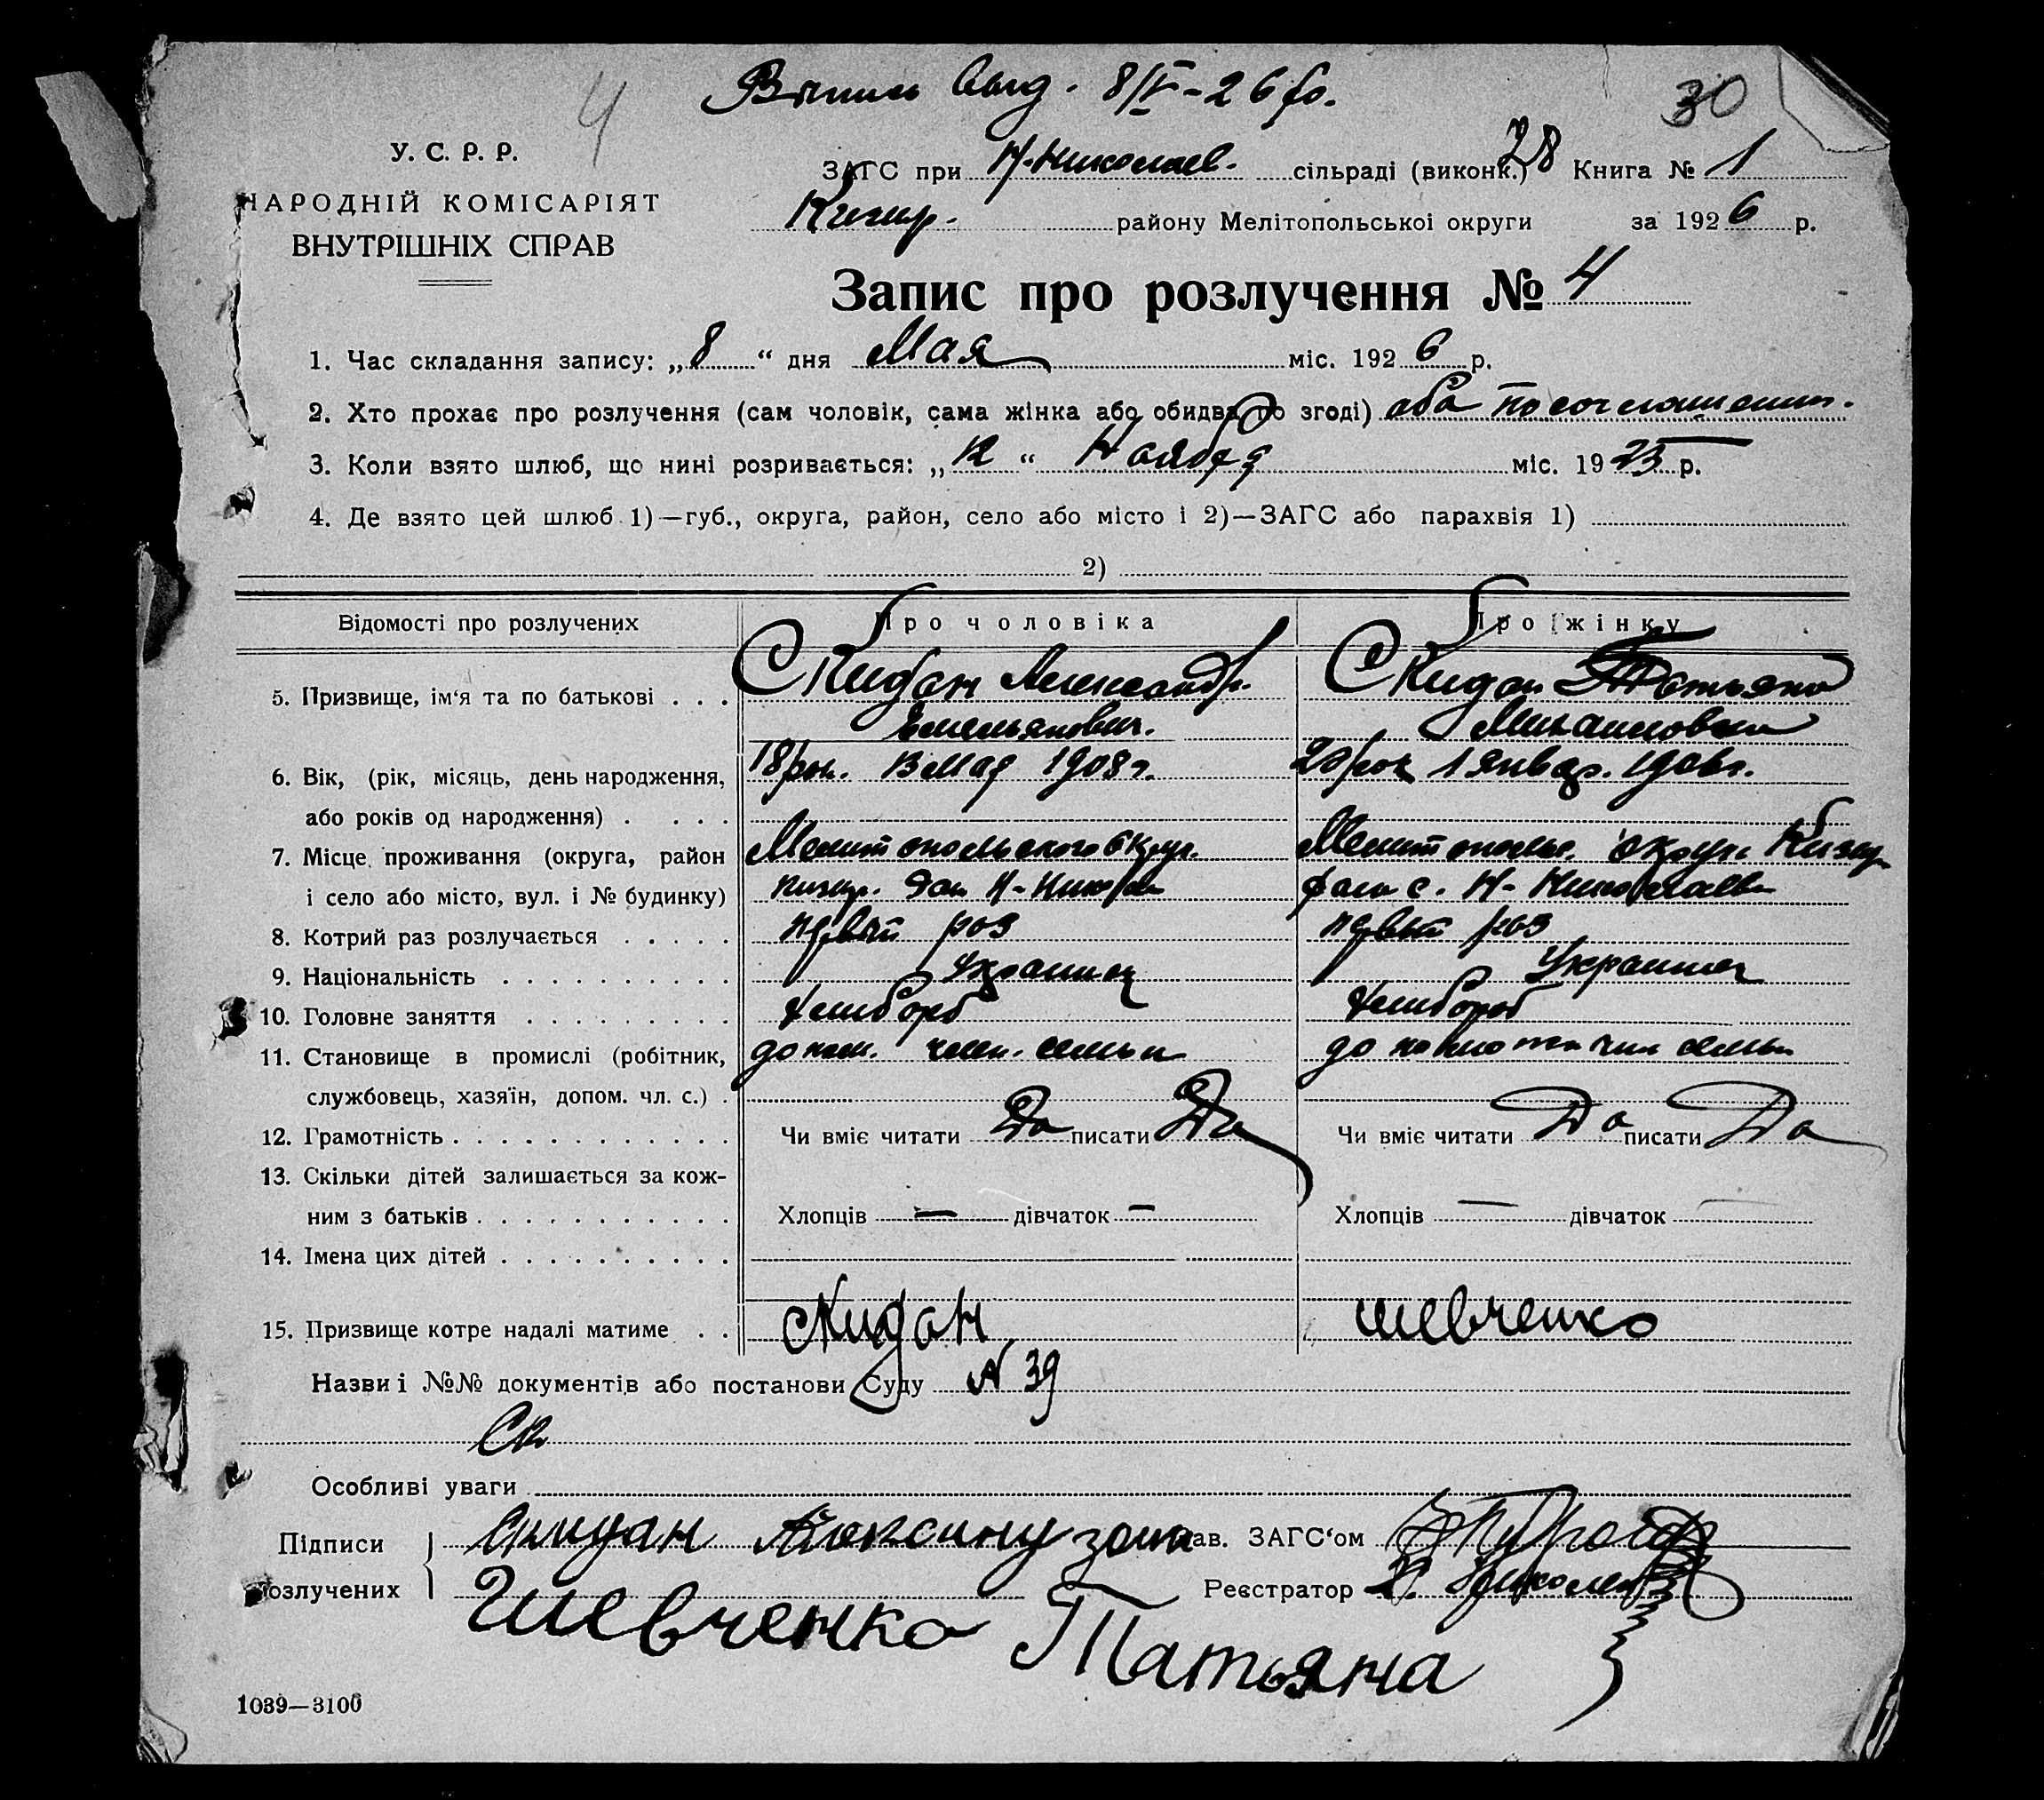 4
8/V-26 30
У. С. Р. Р.
НАРОДНІЙ КОМІСАРІЯТ
ВНУТРІШНІХ СПРАВ
ЗАГС при Н-Николаев. сільраді (виконк.) 28 Книга № 1
Кизир. району Мелітопольської округи за 1926 р.
Запис про розлучення № 4
1. Час складання запису: „8“ дня Мая міс. 1926 р.
2. Хто прохає про розлучення (сам чоловік, сама жінка або обидва по згоді) оба по соглашению.
3. Коли взято шлюб, що нині розривається: „12“ Ноября міс. 19 р.
4. Де взято цей шлюб 1)—губ., округа, район, село або місто і 2)—ЗАГС або парахвія 1)
2)
Відомості про розлучених Про чоловіка Про жінку
5. Призвище, ім‘я та по батькові . . . Скидан Александр. Скидан Татьяна
Емельянович. Михайловна
6. Вік, (рік, місяць, день народження, 18 рок. 1908 г. 20 рок 1 Январ. 1906 г.
або років од народження) . . . .
7. Місце проживання (округа, район Мелитопольского Округ. Мелитопольс. округ Кизир
і село або місто, вул. і № будинку) Кизир. рай Н-Никол с. Н-Николаевк
8. Котрий раз розлучається . . . . . первый раз первый раз
9. Національність . . . . . . . . . . Украинец Украинец
10. Головне заняття . . . . . . . . . хлебороб хлебороб
11. Становище в промислі (робітник, допом. член. семьи член семьи
службовець, хазяїн, допом. чл. с.) .
12. Грамотність . . . . . . . . . . . . Чи вміє читати Да писати Да Чи вміє читати Да писати Да
13. Скільки дітей залишається за кож-
ним з батьків . . . . . . . . . . . Хлопців — дівчаток — Хлопців — дівчаток —
14. Імена цих дітей . . . . . . . . . .
15. Призвище котре надалі матиме . . Скидан Шевченко
Назви і №№ документів або постанови Суду N 39
Ск
Особливі уваги
Підписи Скидан Зав. ЗАГС‘ом
розлучених Реєстратор
Шевченко Татьяна
1039—3100